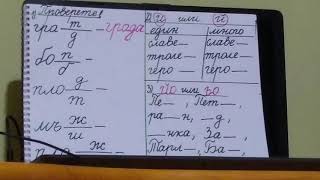 1) Проверете
гра т/д — града
бо п/б —
пло д/т —
мъ ж/ш —
ж —
2) Ю или
един много
славе— славе—
троле— троле—
геро— геро—
3) Йо или ьо
Пе—, Пет—,
ра—н, —д,
—нка, За—,
Ба—,